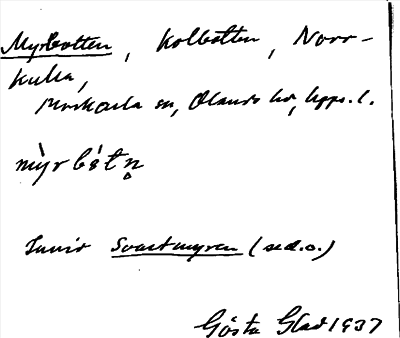 Myrbotten, Kolbotten, Norr-
kulla,
Morkarla sn, Olands hd, Upps. l.
mỳrbót n̥
Invid Svartmyren (sed.o.)
Gösta Glad 1937